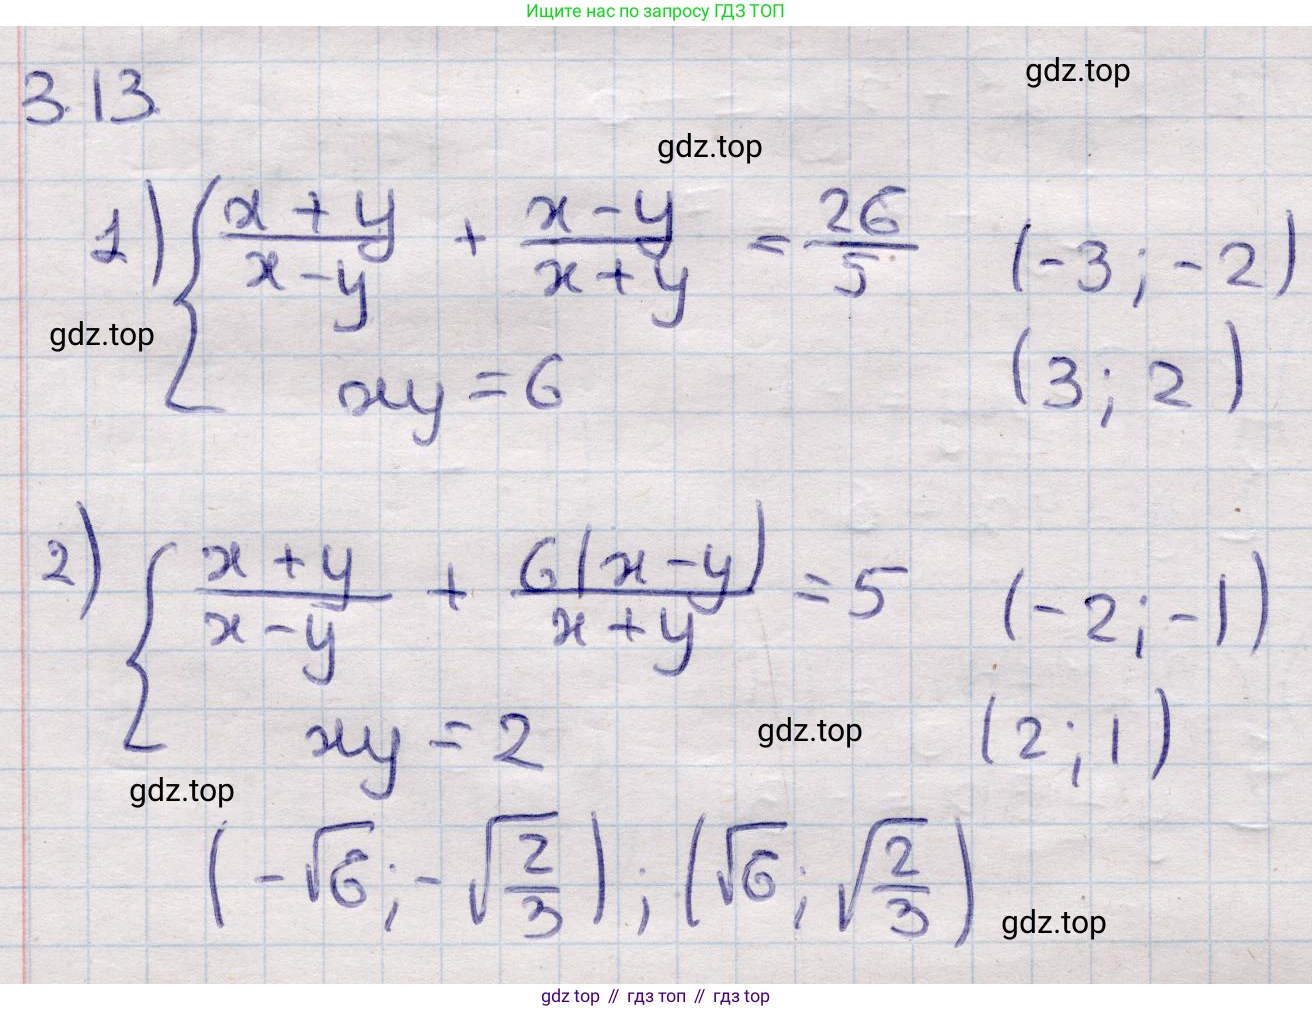 Ищите нас по запросу ГДЗ ТОП
gdz.top
3.13.
gdz.top
1) { (x + y)/(x - y) + (x - y)/(x + y) = 26/5 (-3; -2)
gdz.top
xy = 6 (3; 2)
2) { (x + y)/(x - y) + 6(x - y)/(x + y) = 5 (-2; -1)
xy = 2 gdz.top (2; 1)
gdz.top
(-√6; -√(2/3)); (√6; √(2/3))
gdz.top
gdz top // гдз топ // гдз top